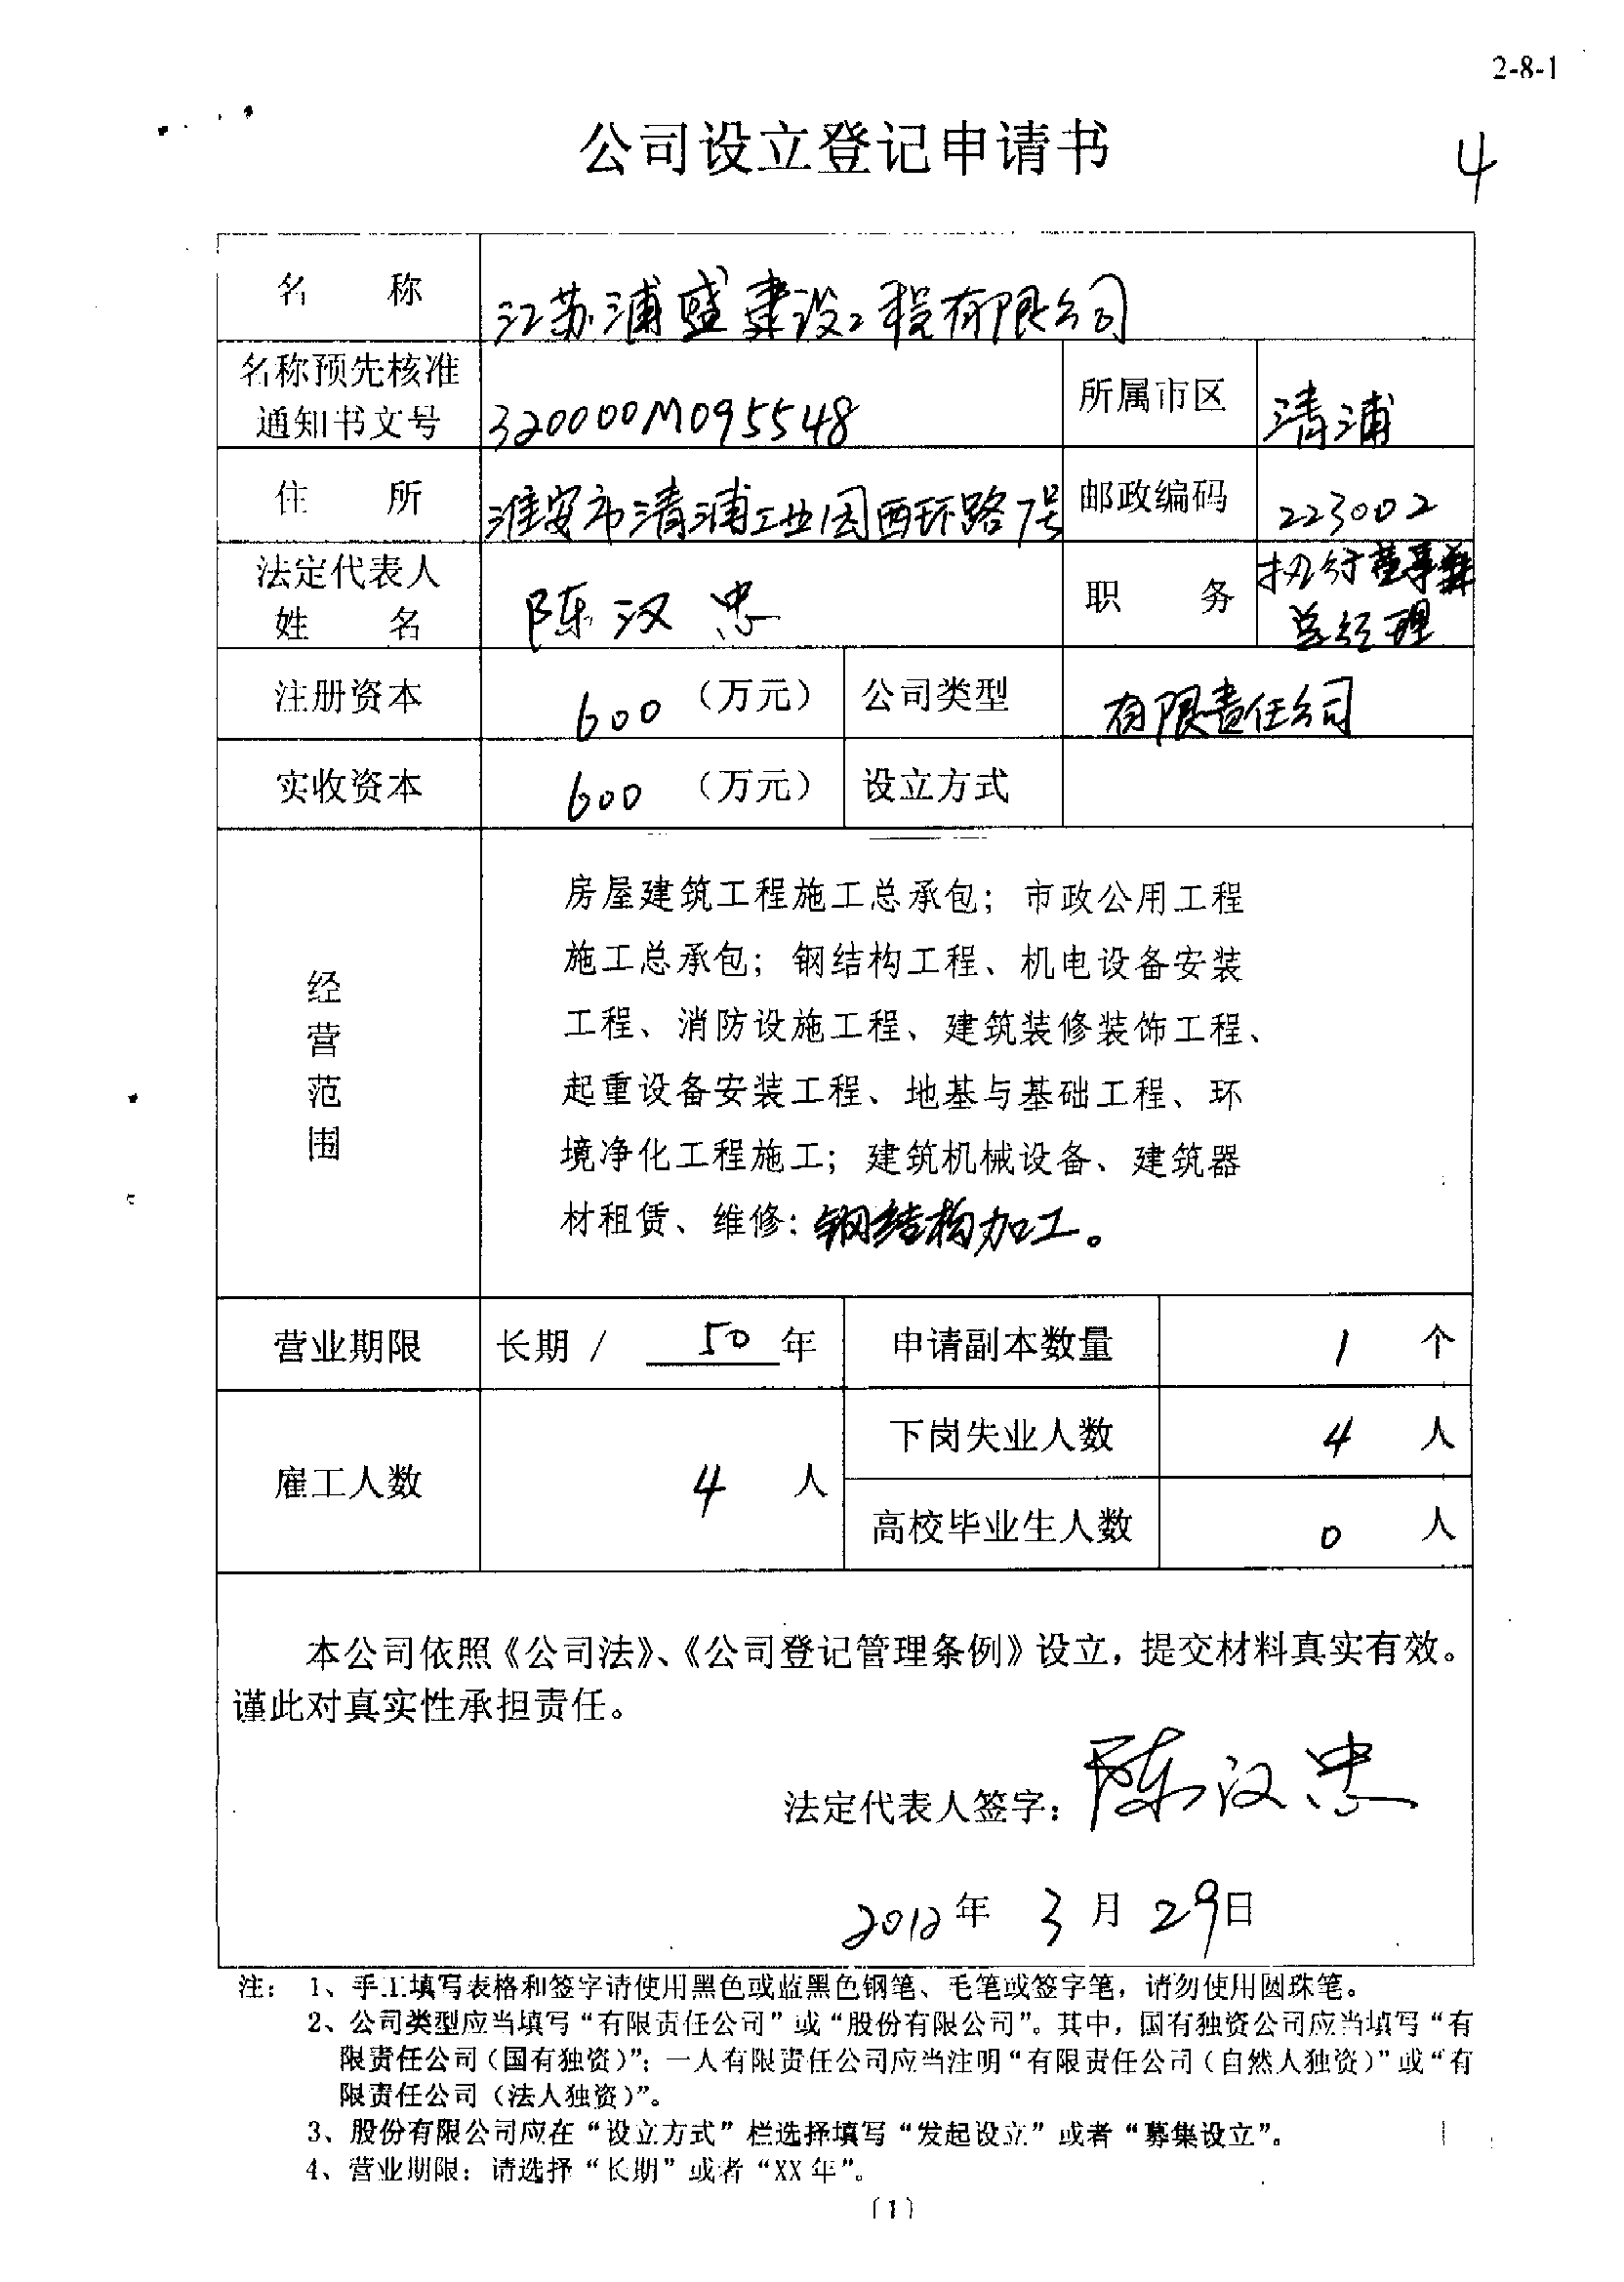 2-8-1
公司设立登记申请书
4
名 称 江苏浦盛建设工程有限公司
名称预先核准通知书文号 320000M095548 所属市区 清浦
住 所 淮安市清浦工业园西环路7号 邮政编码 223002
法定代表人姓名 陈汉忠 职 务 执行董事兼总经理
注册资本 600（万元） 公司类型 有限责任公司
实收资本 600（万元） 设立方式
经营范围
房屋建筑工程施工总承包；市政公用工程
施工总承包；钢结构工程、机电设备安装
工程、消防设施工程、建筑装修装饰工程、
起重设备安装工程、地基与基础工程、环
境净化工程施工；建筑机械设备、建筑器
材租赁、维修；钢结构加工。
营业期限 长期 / 50 年 申请副本数量 1 个
雇工人数 4 人 下岗失业人数 4 人
高校毕业生人数 0 人
本公司依照《公司法》、《公司登记管理条例》设立，提交材料真实有效。
谨此对真实性承担责任。
法定代表人签字：陈汉忠
2012年 3月 29日
注： 1、手工填写表格和签字请使用黑色或蓝黑色钢笔、毛笔或签字笔，请勿使用圆珠笔。
2、公司类型应当填写“有限责任公司”或“股份有限公司”。其中，国有独资公司应当填写“有
限责任公司（国有独资）”；一人有限责任公司应当注明“有限责任公司（自然人独资）”或“有
限责任公司（法人独资）”。
3、股份有限公司应在“设立方式”栏选择填写“发起设立”或者“募集设立”。
4、营业期限：请选择“长期”或者“XX年”。
（1）